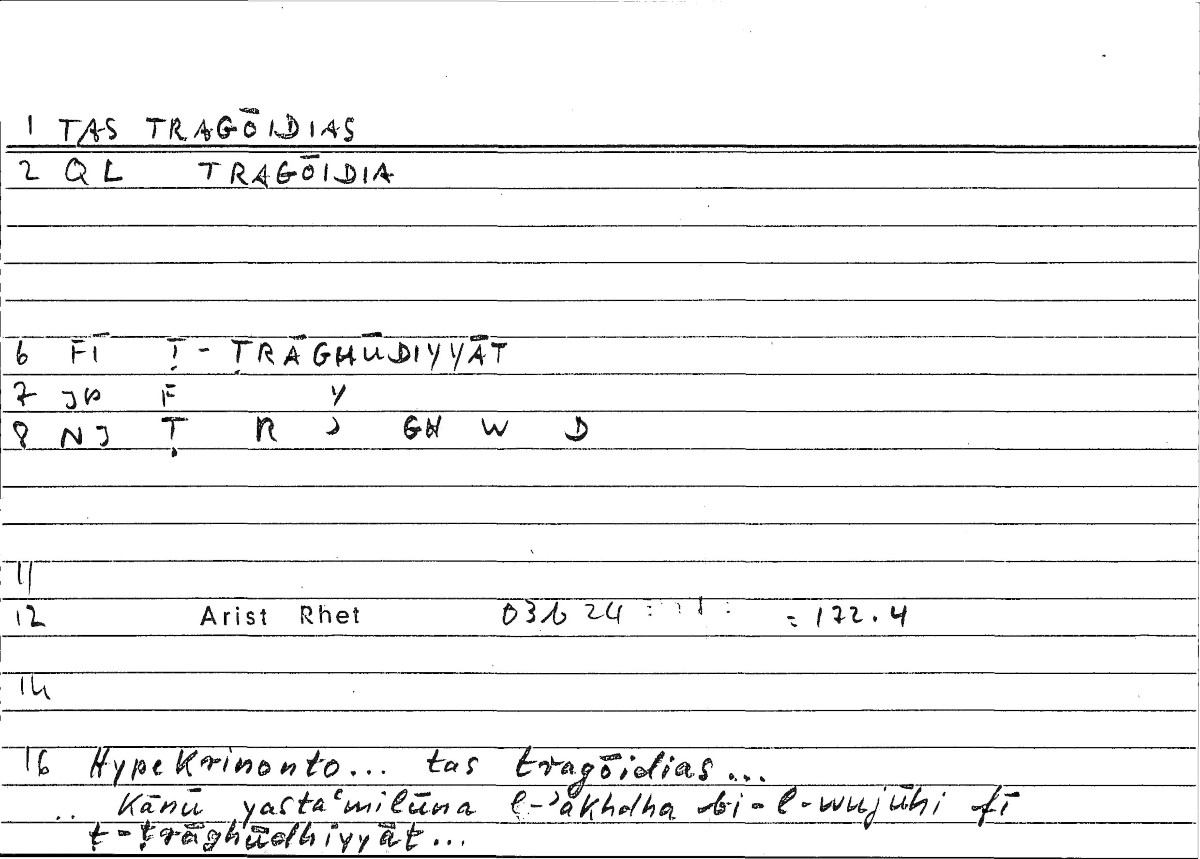 1 TAS TRAGŌIDIAS
2 QL TRAGŌIDIA
6 FĪ Ṭ - ṬRĀGHŪDIYYĀT
7 JP F Y
8 NJ Ṭ R ʾ GH W D
11
12 Arist Rhet 03b 24 = 172.4
14
16 Hypekrinonto... tas tragōidias...
.. Kānū yastaʿmilūna l-ʾakhdha bi-l-wujūhi fī
ṭ-ṭrāghūdhiyyāt...